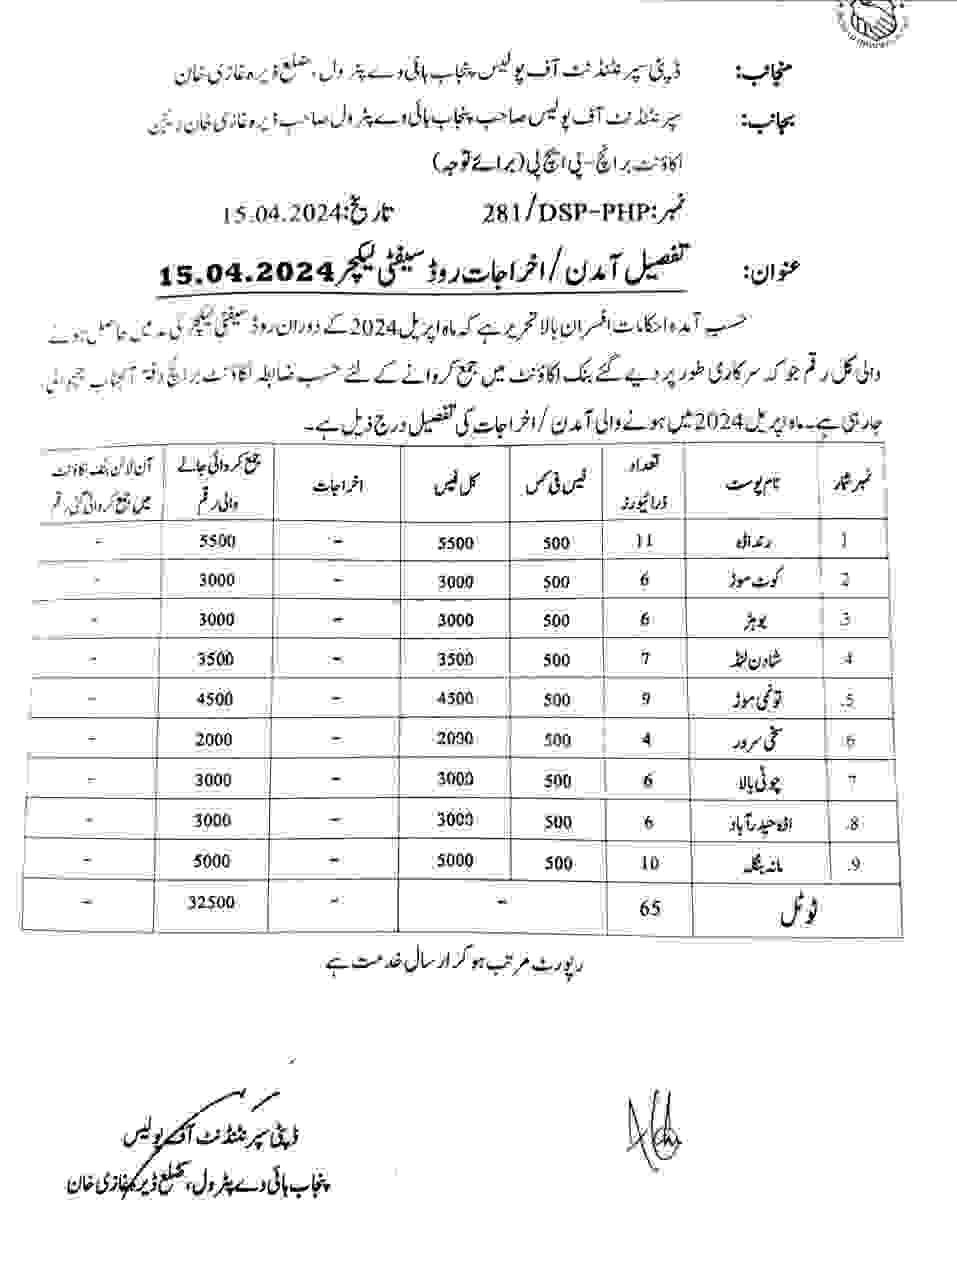 منجانب: ڈپٹی سپرنٹنڈنٹ آف پولیس پنجاب ہائی وے پٹرول، ضلع ڈیرہ غازی خان
بجانب: سپرنٹنڈنٹ آف پولیس صاحب پنجاب ہائی وے پٹرول صاحب ڈیرہ غازی خان ریجن
اکاؤنٹ برانچ-پی ایچ پی (برائے توجہ)
نمبر: 281/DSP-PHP تاریخ: 15.04.2024
عنوان: تفصیل آمدن / اخراجات روڈ سیفٹی لیکچر 15.04.2024
حسب آمدہ احکامات افسران بالا تحریر ہے کہ ماہ اپریل 2024 کے دوران روڈ سیفٹی لیکچر کی مد میں حاصل ہونے
والی کل رقم جو کہ سرکاری طور پر دیے گئے بنک اکاؤنٹ میں جمع کروانے کے لئے حسب ضابطہ اکاؤنٹ برانچ دفتر آنجناب بھجوائی
جا رہی ہے۔ ماہ اپریل 2024 میں ہونے والی آمدن / اخراجات کی تفصیل درج ذیل ہے۔
نمبر شمار نام پوسٹ تعداد ڈرائیورز فیس فی کس کل فیس اخراجات جمع کروائی جانے والی رقم آن لائن بنک اکاؤنٹ میں جمع کروائی گئی رقم
1 رنداڈہ 11 500 5500 - 5500 -
2 کوٹ موڑ 6 500 3000 - 3000 -
3. بوہڑ 6 500 3000 - 3000 -
4. شادن لنڈ 7 500 3500 - 3500 -
5. تونمی موڑ 9 500 4500 - 4500 -
6. سخی سرور 4 500 2000 - 2000 -
7. چوٹی بالا 6 500 3000 - 3000 -
8. اڈہ حیدرآباد 6 500 3000 - 3000 -
9. مانہ بنگلہ 10 500 5000 - 5000 -
ٹوٹل 65 - - 32500 -
رپورٹ مرتب ہو کر ارسال خدمت ہے
ڈپٹی سپرنٹنڈنٹ آف پولیس
پنجاب ہائی وے پٹرول، ضلع ڈیرہ غازی خان